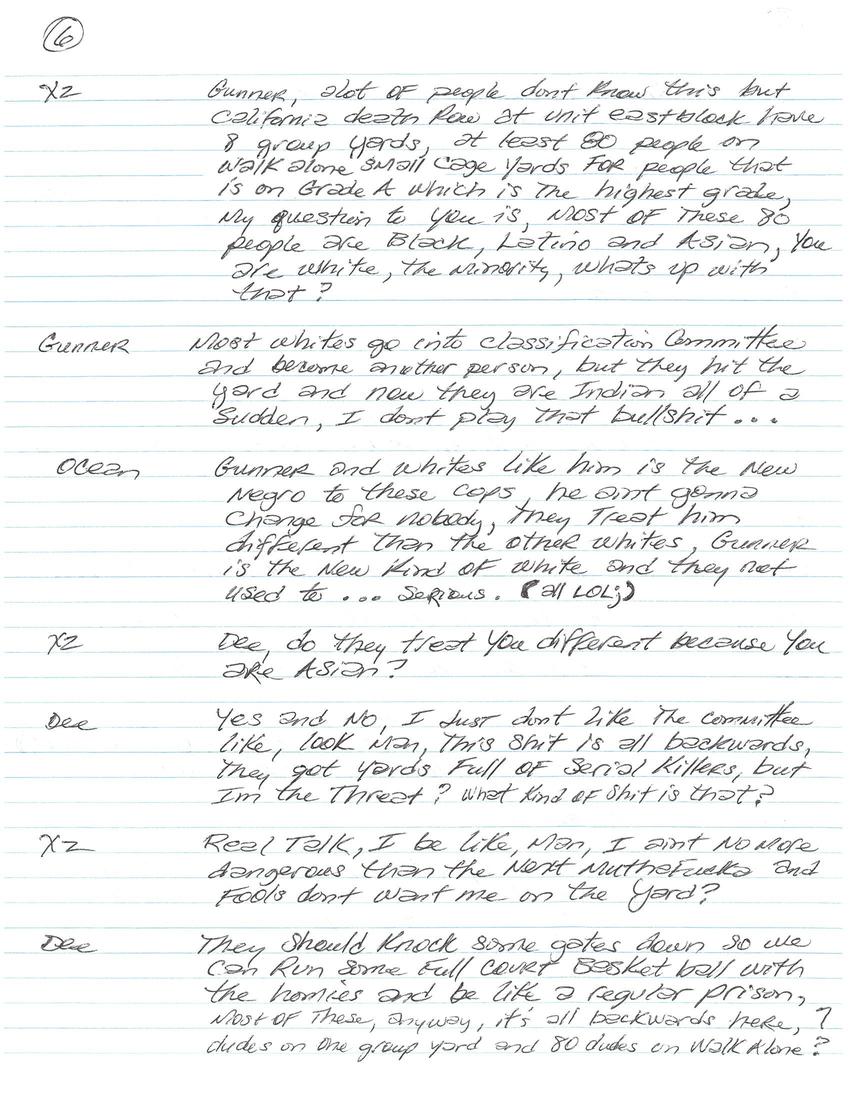 6
XZ Gunner, alot of people dont know this but
California death Row at unit eastblock have
8 group yards, at least 80 people on
walk alone small cage yards for people that
is on Grade A which is the highest grade,
My question to you is, most of these 80
people are Black, Latino and Asian, you
are white, the minority, whats up with
that?
Gunner Most whites go into classification Committee
and become another person, but they hit the
yard and now they are Indian all of a
sudden, I dont play that bullshit...
Ocean Gunner and whites like him is the New
Negro to these cops, he aint gonna
change for nobody, they treat him
different than the other whites, Gunner
is the New kind of white and they not
used to... Serious. (all LOL;)
XZ Dee, do they treat you different because you
are Asian?
Dee Yes and No, I Just dont like the committee
like, look man, this shit is all backwards,
they got yards full of Serial Killers, but
Im the Threat? What kind of shit is that?
XZ Real Talk, I be like, Man, I aint No more
dangerous than the Next MuthaFucka and
Fools dont want me on the yard?
Dee They should knock some gates down so we
can Run some Full court Basket ball with
the homies and be like a regular prison,
most of these, anyway, it's all backwards here, 7
dudes on one group yard and 80 dudes on Walk Alone?